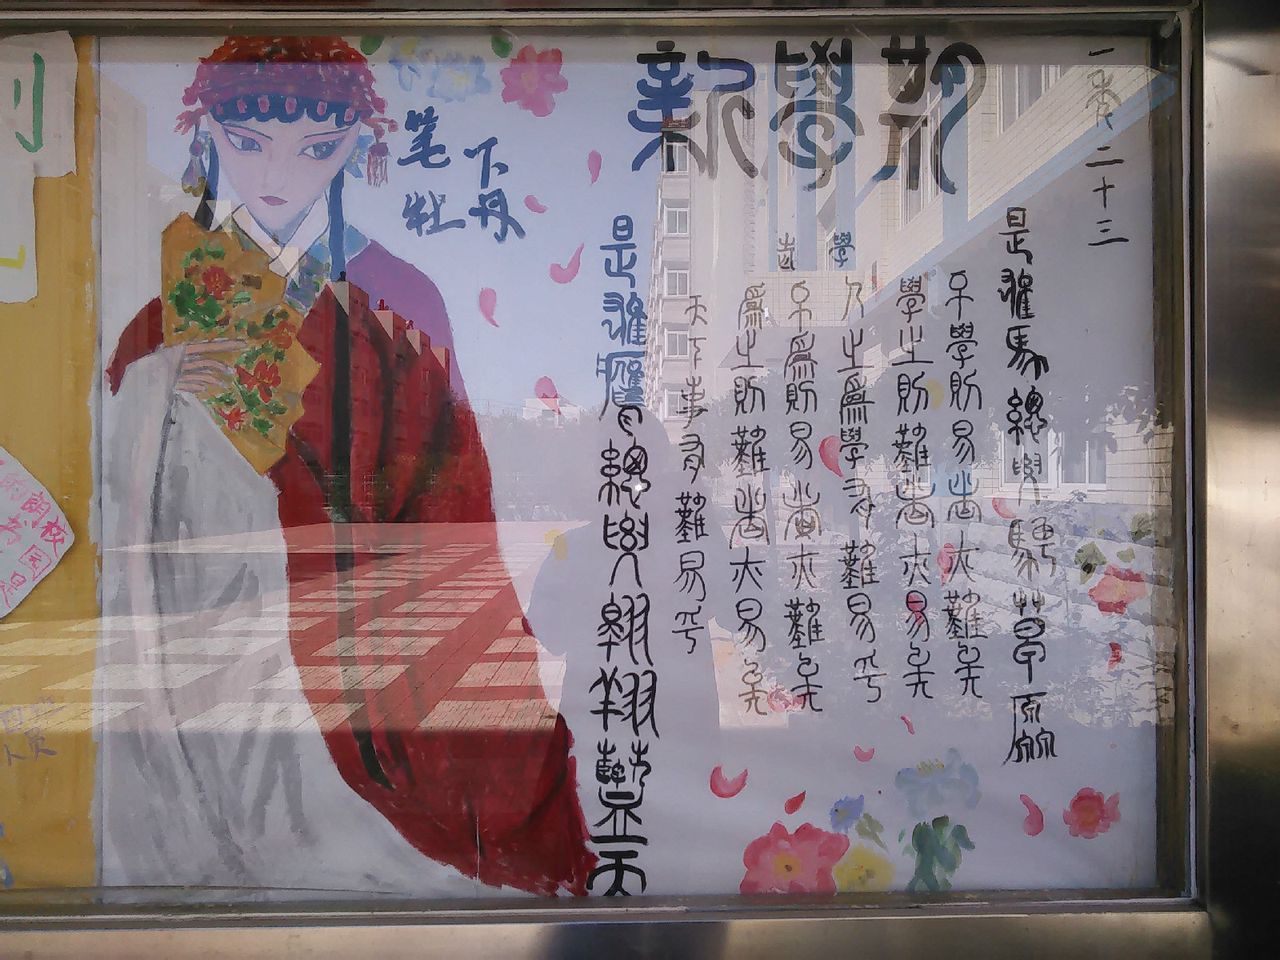 新學期
二十三
笔下
牡丹
是雄鷹總要翱翔藍天
學
天下事有難易乎
爲之則難者亦易矣
不爲則易者亦難矣
人之爲學有難易乎
學之則難者亦易矣
不學則易者亦難矣
是雄馬總要騁草原